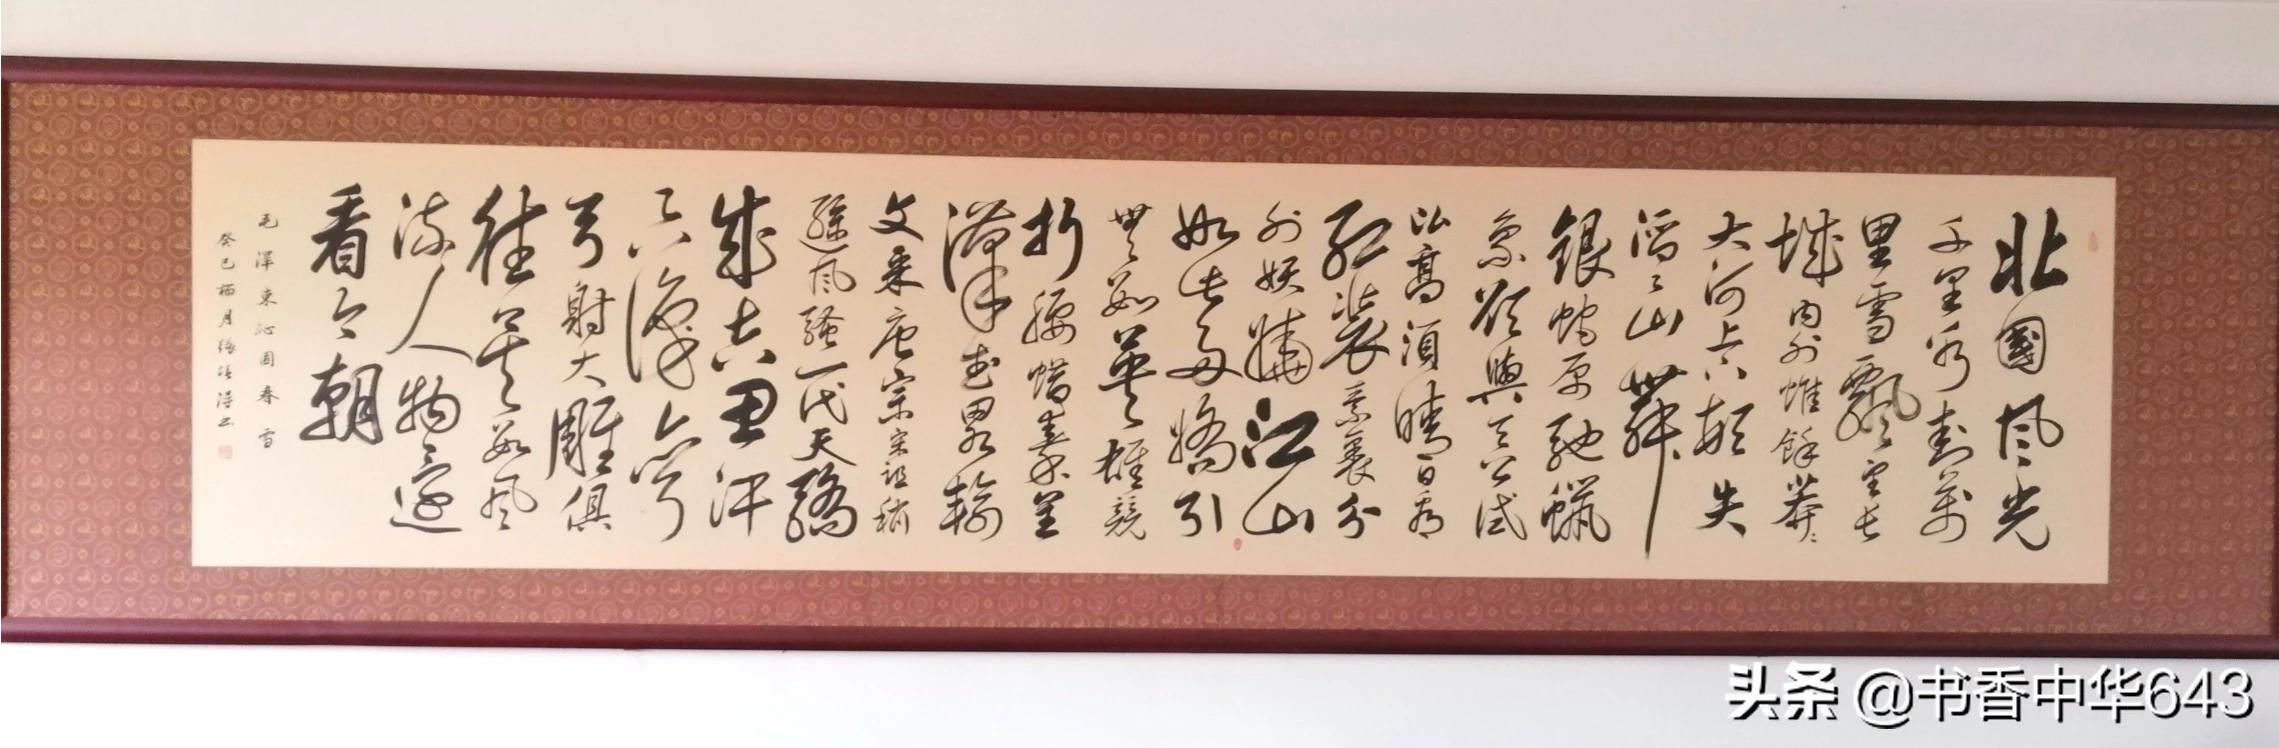 北國风光
千里冰封萬
里雪飄望長
城內外惟餘莽々
大河上下頓失
滔々山舞
銀蛇原馳蠟
象欲與天公試
比高須晴日看
紅裝素裹分
外妖嬈江山
如此多嬌引
無數英雄競
折腰惜秦皇
漢武略輸
文采唐宗宋祖稍
遜风騷一代天驕
成吉思汗
只識彎
弓射大雕俱
往矣數风
流人物還
看今朝
毛澤東沁園春雪
癸巳梅月張書
头条 @书香中华643